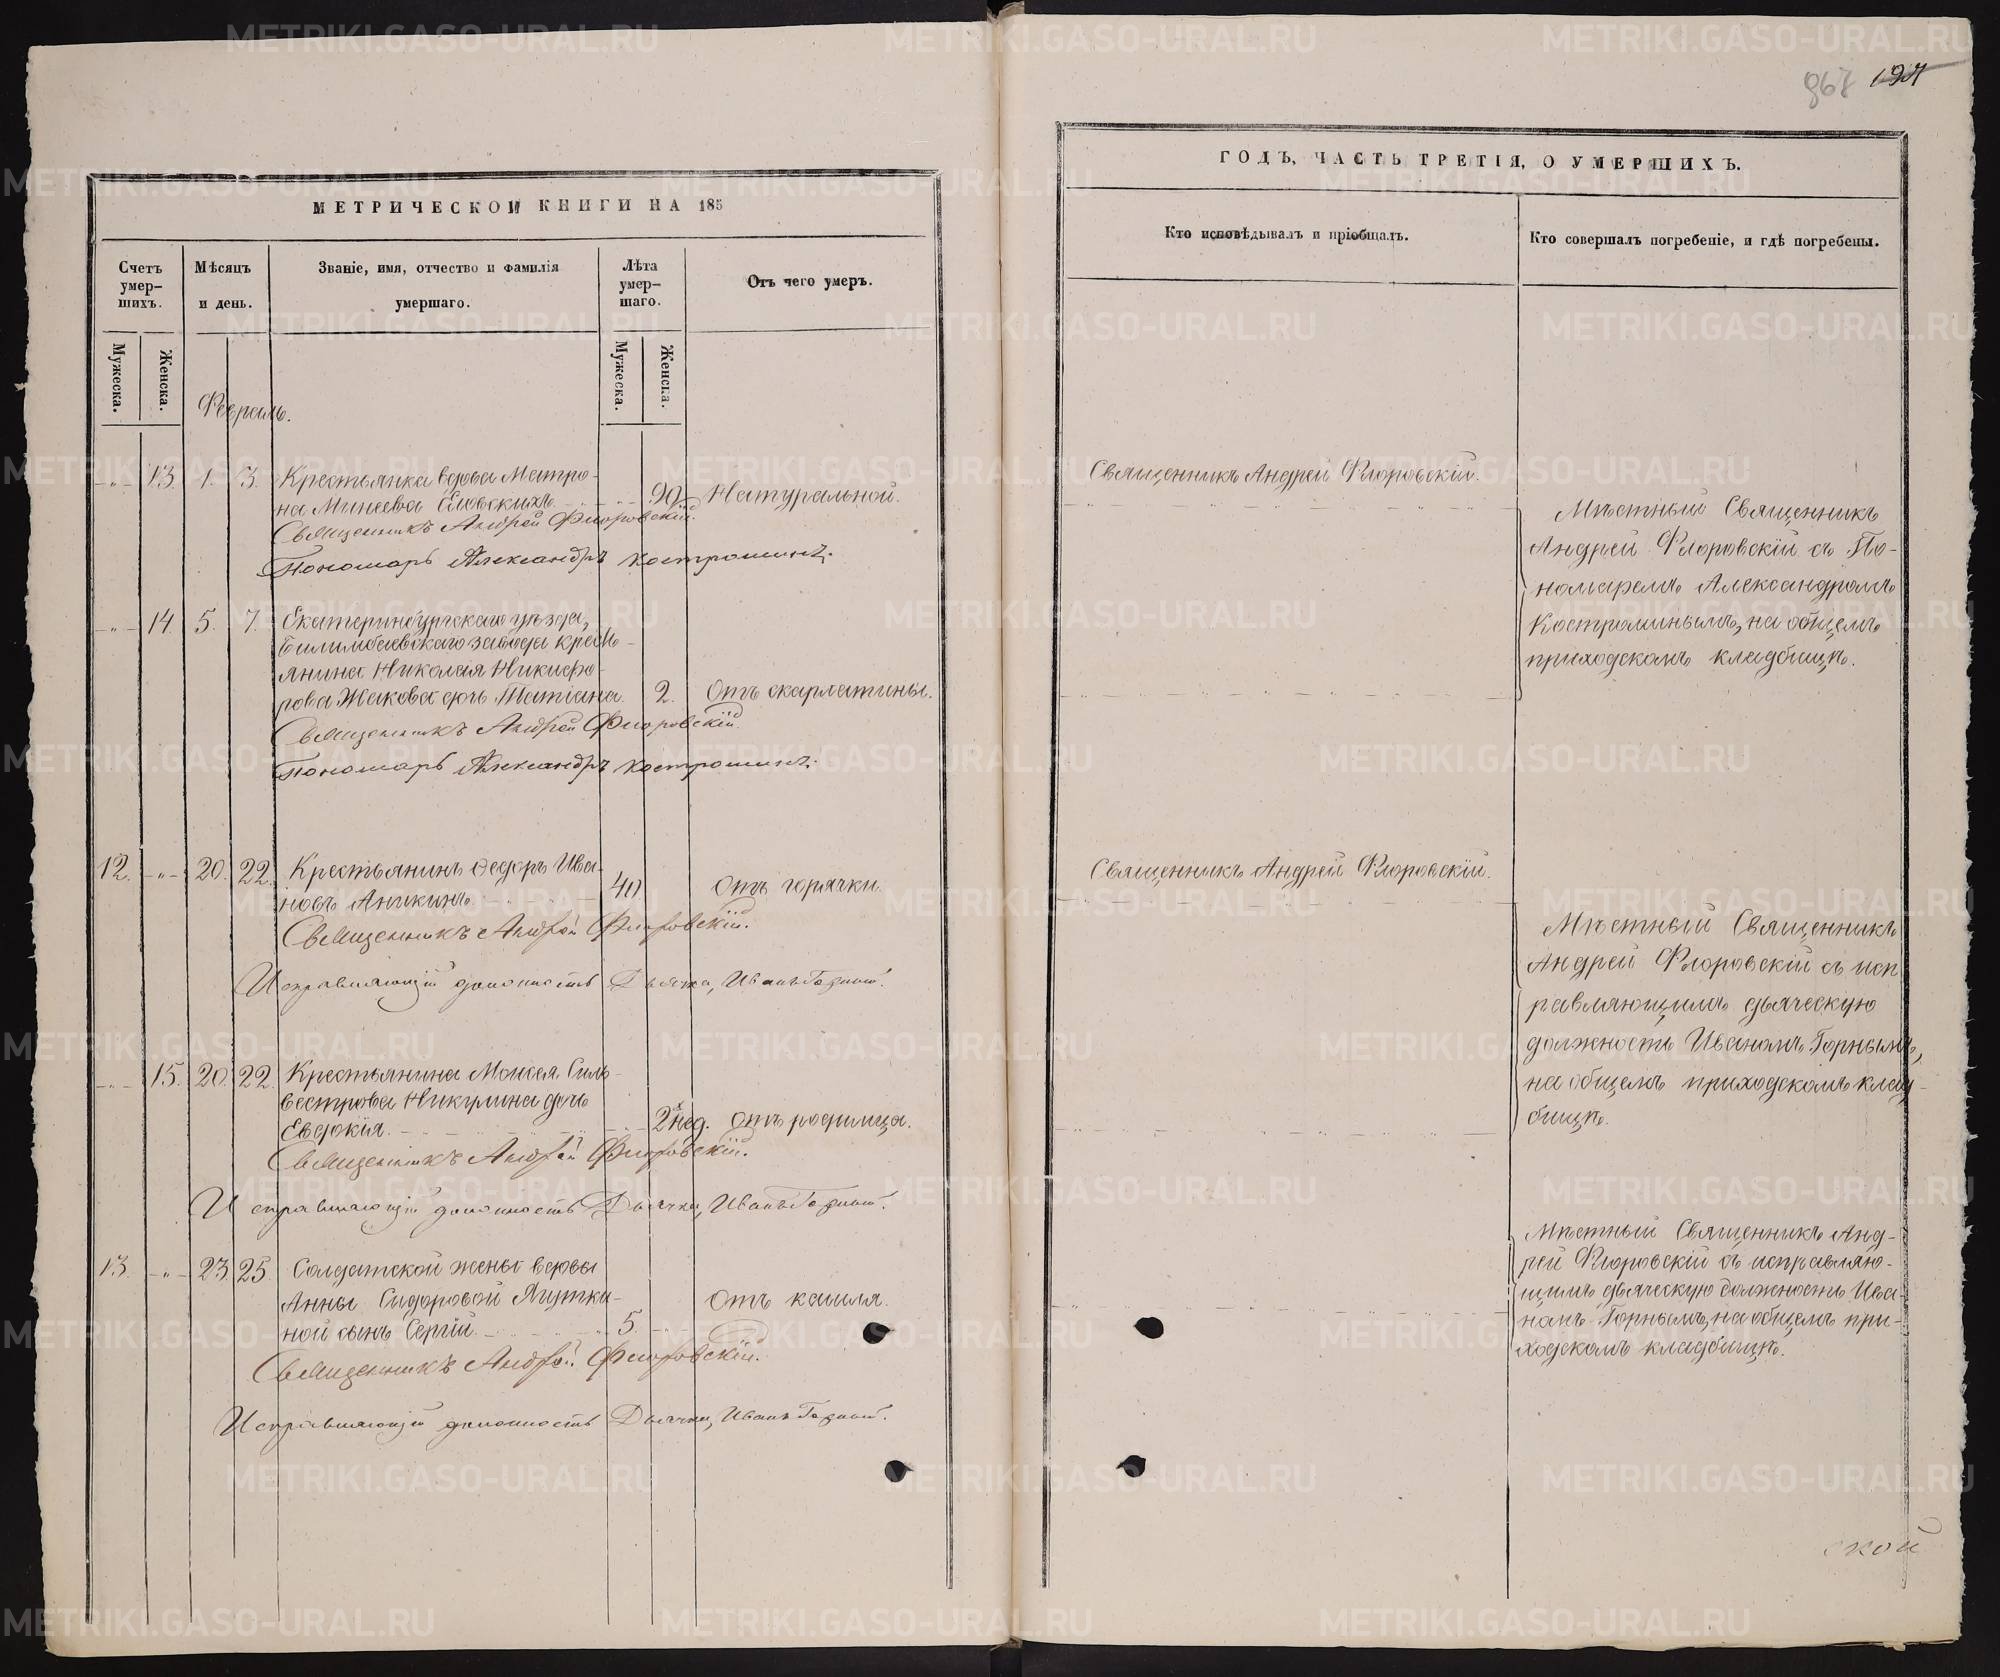 МЕТРИЧЕСКОЙ КНИГИ НА 185
Счетъ умер-
шихъ.
Мужеска.
Женска.
Мѣсяцъ
и день.
Званіе, имя, отчество и фамилія
умершаго.
Лѣта
умер-
шаго.
Мужеска.
Женска.
Отъ чего умеръ.
Февраль.
-„- 13. 1. 3. Крестьянка вдова Матро-
на Минеева Еловскихъ 90 Натуральной.
Священникъ Андрей Флоровскій.
Пономарь Александръ Костроминъ.
-„- 14. 5. 7. Екатеринбургскаго уѣзда,
Билимбаевскаго завода кресть-
янина Николая Никифо-
рова Жакова дочь Татіана. 2. Отъ скарлатины.
Священникъ Андрей Флоровскій.
Пономарь Александръ Костроминъ.
12. -„- 20. 22. Крестьянинъ Ѳедоръ Ива-
новъ Аникинъ. 40. Отъ горячки.
Священникъ Андрей Флоровскій.
Исправляющій должность Дьячка, Иванъ Горный.
-„- 15. 20. 22. Крестьянина Моисея Силь-
вестрова Никулина дочь
Евдокія. 2 нед. Отъ родимца.
Священникъ Андрей Флоровскій.
Исправляющій должность Дьячка, Иванъ Горный.
13. -„- 23. 25. Солдатской жены вдовы
Анны Сидоровой
ной сынъ Сергій 5. Отъ кашля.
Священникъ Андрей Флоровскій.
Исправляющій должность Дьячка, Иванъ Горный.
967 127
ГОДЪ, ЧАСТЬ ТРЕТІЯ, О УМЕРШИХЪ.
Кто исповѣдывалъ и пріобщалъ.
Кто совершалъ погребеніе, и гдѣ погребены.
Священникъ Андрей Флоровскій.
Мѣстный Священникъ
Андрей Флоровскій съ По-
номаремъ Александромъ
Костроминымъ, на общемъ
приходскомъ кладбищѣ.
Священникъ Андрей Флоровскій.
Мѣстный Священникъ
Андрей Флоровскій съ исп
равляющимъ дьяческую
должность Иваномъ Горнымъ,
на общемъ приходскомъ клад-
бищѣ.
Мѣстный Священникъ Анд-
рей Флоровскій съ исправляю-
щимъ дьяческую должность Ива-
номъ Горнымъ, на общемъ при-
ходскомъ кладбищѣ.
ской
METRIKI.GASO-URAL.RU